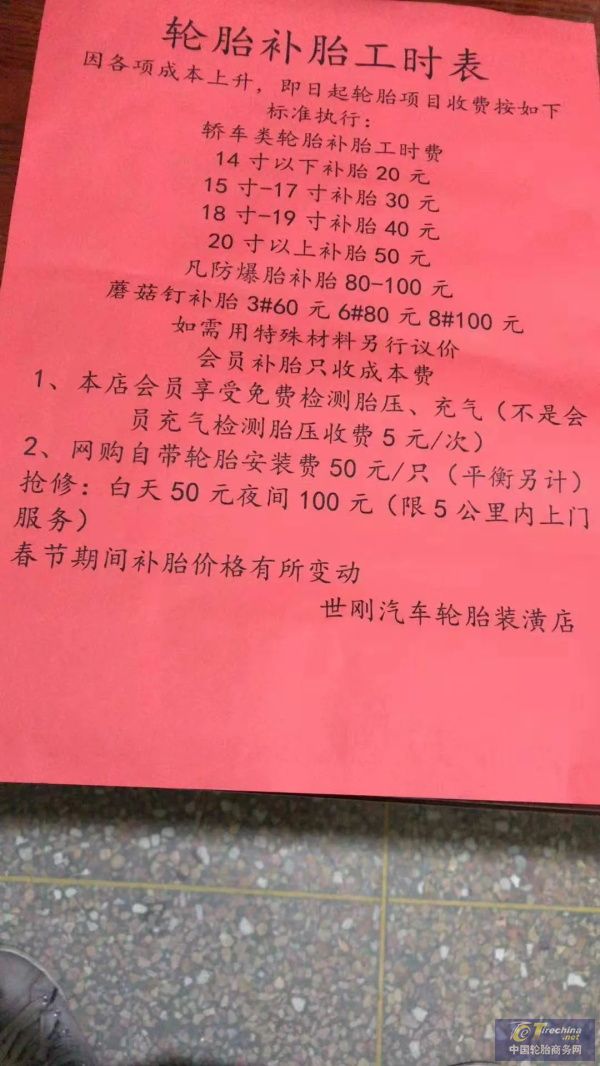 轮胎补胎工时表
因各项成本上升，即日起轮胎项目收费按如下
标准执行：
轿车类轮胎补胎工时费
14 寸以下补胎 20 元
15 寸-17 寸补胎 30 元
18 寸-19 寸补胎 40 元
20 寸以上补胎 50 元
凡防爆胎补胎 80-100 元
蘑菇钉补胎 3#60 元 6#80 元 8#100 元
如需用特殊材料另行议价
会员补胎只收成本费
1、本店会员享受免费检测胎压、充气（不是会
员充气检测胎压收费 5 元/次）
2、网购自带轮胎安装费 50 元/只（平衡另计）
抢修：白天 50 元夜间 100 元（限 5 公里内上门
服务）
春节期间补胎价格有所变动
世刚汽车轮胎装潢店
Tirechina
.net
中国轮胎商务网